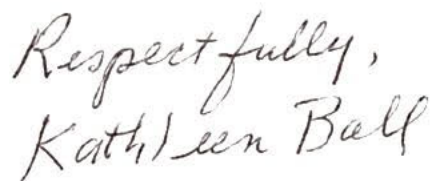 Respectfully,
Kathleen Ball